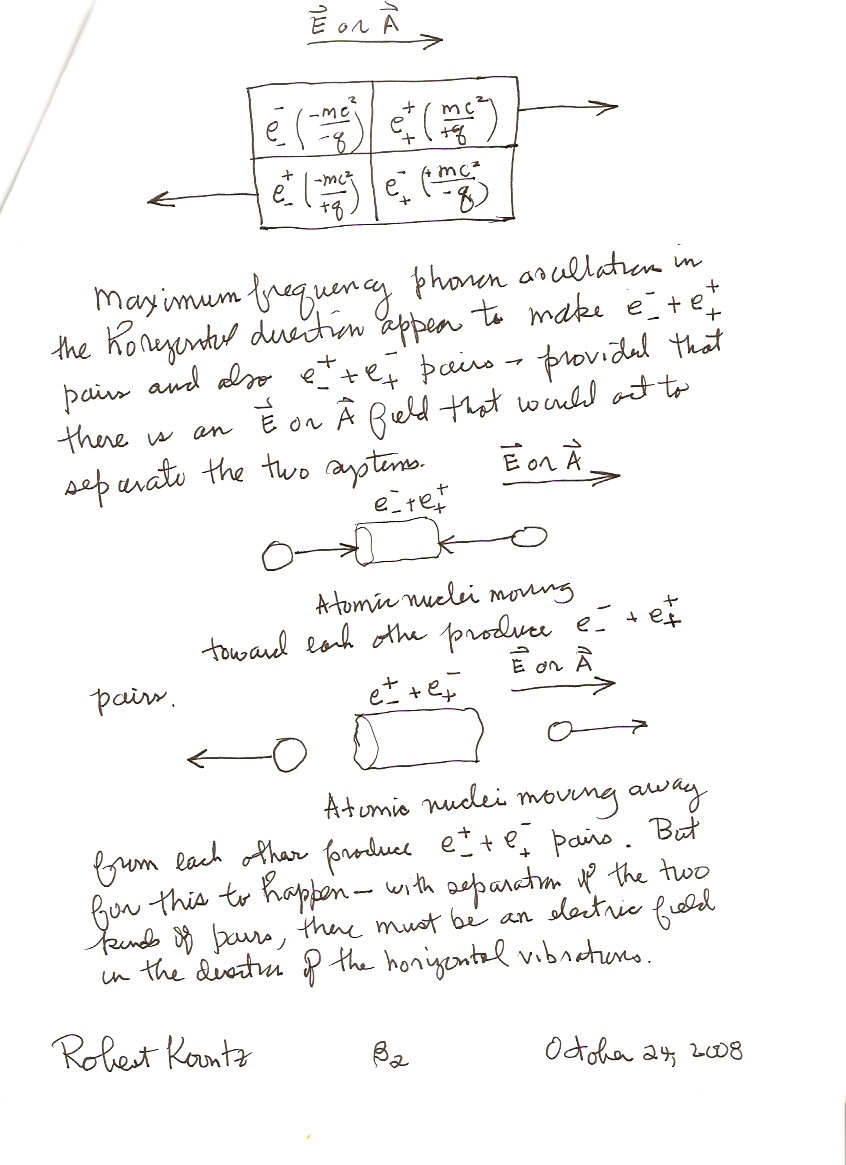 E⃗ or A⃗
e₋⁻ (-mc²/-q) e₊⁺ (mc²/+q)
e₋⁺ (-mc²/+q) e₊⁻ (+mc²/-q)
Maximum frequency phonon oscillation in
the horizontal direction appear to make e₋⁻ + e₊⁺
pairs and also e₋⁺ + e₊⁻ pairs - provided that
there is an E⃗ or A⃗ field that would act to
separate the two systems.
E⃗ or A⃗
e₋⁻ + e₊⁺
Atomic nuclei moving
toward each othe produce e₋⁻ + e₊⁺
pairs.
E⃗ or A⃗
e₋⁺ + e₊⁻
Atomic nuclei moving away
from each other produce e₋⁺ + e₊⁻ pairs. But
for this to happen - with separation of the two
kinds of pairs, there must be an electric field
in the direction of the horizontal vibrations.
Robert Kountz β₂ October 24, 2008